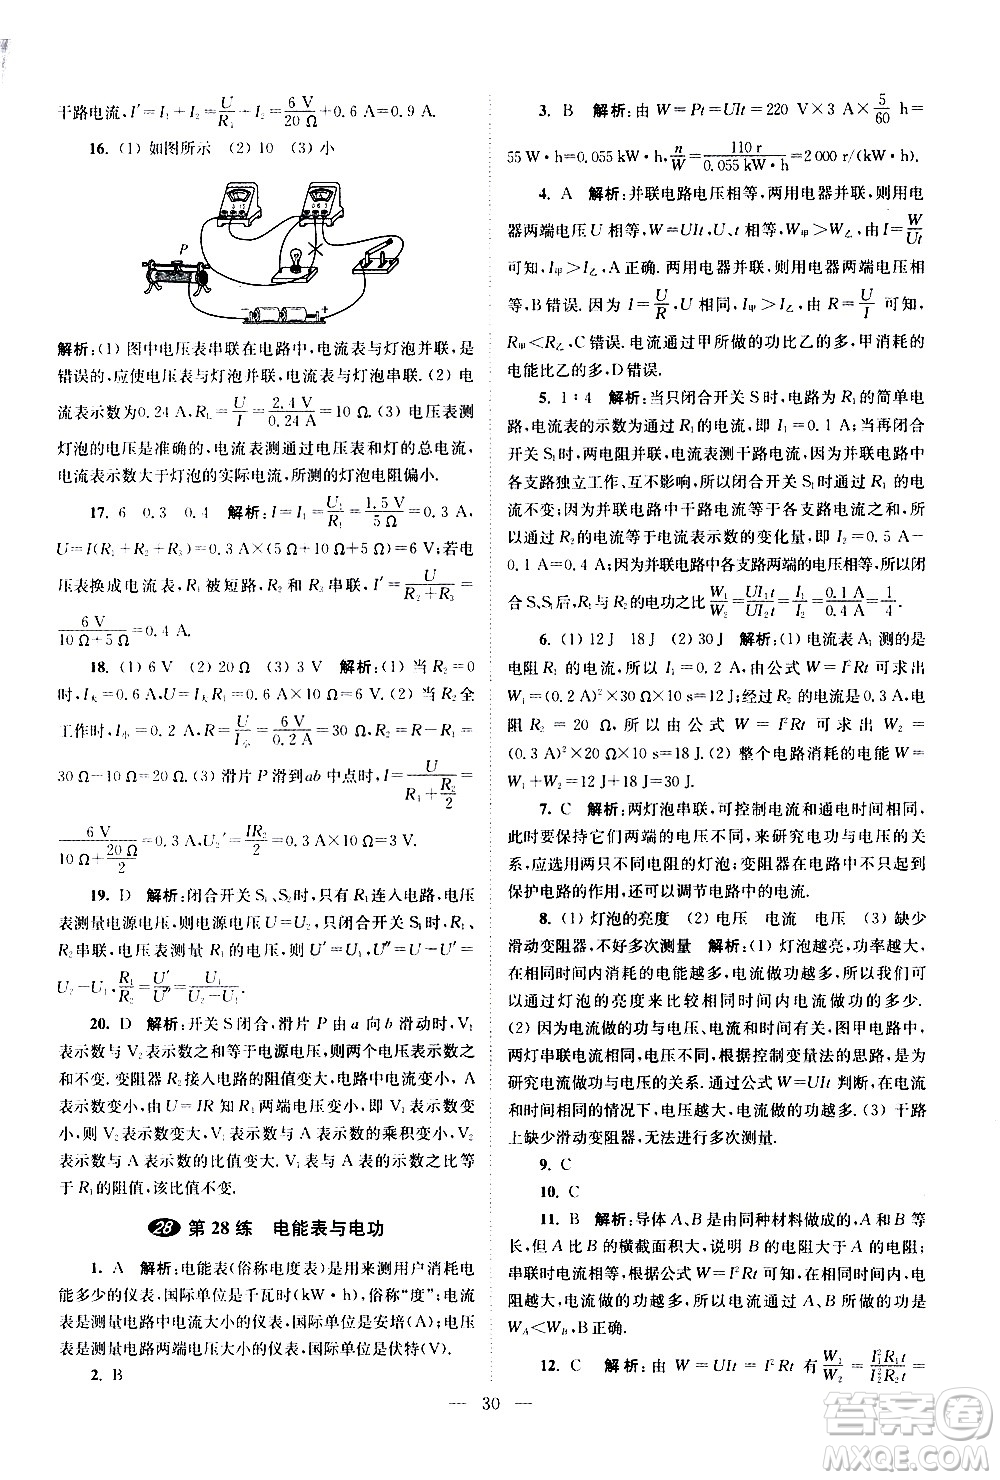 干路电流, I′=I₁+I₂=U/R₁+I₂=6 V/20 Ω+0.6 A=0.9 A.
16. (1) 如图所示 (2) 10 (3) 小
P
解析:(1) 图中电压表串联在电路中,电流表与灯泡并联,是
错误的,应使电压表与灯泡并联,电流表与灯泡串联.(2) 电
流表示数为0.24 A,R_L=U/I=2.4 V/0.24 A=10 Ω.(3) 电压表测
灯泡的电压是准确的,电流表测通过电压表和灯的总电流,
电流表示数大于灯泡的实际电流,所测的灯泡电阻偏小.
17. 6 0.3 0.4 解析:I=I₁=U₁/R₁=1.5 V/5 Ω=0.3 A,
U=I(R₁+R₂+R₃)=0.3 A×(5 Ω+10 Ω+5 Ω)=6 V;若电
压表换成电流表,R₁被短路,R₂和R₃串联,I′=U/(R₂+R₃)=
6 V/(10 Ω+5 Ω)=0.4 A.
18. (1) 6 V (2) 20 Ω (3) 3 V 解析:(1) 当R₂=0
时,I大=0.6 A,U=I大R₁=0.6 A×10 Ω=6 V.(2) 当R₂全
工作时,I小=0.2 A,R=U/I小=6 V/0.2 A=30 Ω,R₂=R-R₁=
30 Ω-10 Ω=20 Ω.(3) 滑片P滑到ab中点时,I=U/(R₁+R₂/2)=
6 V/(10 Ω+20 Ω/2)=0.3 A,U₂′=IR₂/2=0.3 A×20 Ω/2=3 V.
19. D 解析:闭合开关S₁、S₂时,只有R₁连入电路,电压
表测量电源电压,所以电源电压U=U₂,只闭合开关S₁时,R₁、
R₂串联,电压表测量R₁的电压,所以U′=U₁,R₂的电压U″=
U₂-U₁,R₁/R₂=U′/U″=U₁/(U₂-U₁).
20. D 解析:开关S闭合,滑片P由a向b滑动时,V₁
表示数与V₂表示数之和等于电源电压,所以两表示数之和
不变.变阻器R₂接入电路的阻值变大,电路中电流变小,即A
表示数变小,由U=IR知R₁的电压变小,即V₁表示数变
小,则V₂表示数变大,V₁表示数与A表示数的乘积变小,
V₂表示数与A表示数的比值变大.V₁表与A表示数的比值等
于R₁的阻值,该比值不变.
28 第28练 电能表与电功
1. A 解析:电能表(俗称电度表)是用来测用户消耗电
能多少的仪表,国际单位是千瓦时(kW·h),俗称“度”;电流
表是测量电路中电流大小的仪表,国际单位是安培(A);电压
表是测量电路两端电压大小的仪表,国际单位是伏特(V).
2. B
3. B 解析:由W=Pt=UIt=220 V×3 A×5/60 h=
55 W·h=0.055 kW·h,n/W=110 r/0.055 kW·h=2 000 r/(kW·h).
4. A 解析:并联电路电压相等,两用电器并联,则用电
器两端电压U相等,W=UIt,U、t相等,W甲>W乙,由I=W/Ut
可知,I甲>I乙,A正确.两用电器并联,则用电器两端电压相
等,B错误.因为I=U/R,U相等,I甲>I乙,由R=U/I可知,
R甲<R乙,C错误.电流通过甲所做的功比乙的多,甲消耗的
电能比乙的多,D错误.
5. 1∶4 解析:当只闭合开关S时,电路为R₁的简单电
路,电流表测通过R₁的电流,即I₁=0.1 A;当再闭合
开关S₁时,两电阻并联,电流表测干路电流,因为并联电路中
各支路独立工作、互不影响,所以闭合开关S₁时通过R₁的电
流不变;因为并联电路中干路电流等于各支路电流之和,所
以通过R₂的电流等于电流表示数的变化量,即I₂=0.5 A-
0.1 A=0.4 A;因为并联电路中各支路两端的电压相等,所以闭
合S、S₁后,R₁与R₂的电功之比W₁/W₂=UI₁t/UI₂t=I₁/I₂=0.1 A/0.4 A=1/4.
6. (1) 12 J 18 J (2) 30 J 解析:(1) 电流表A₁测的是
电阻R₁的电流,所以I₁=0.2 A,由公式W=I²Rt可求出
W₁=(0.2 A)²×30 Ω×10 s=12 J;经过R₂的电流是0.3 A,电
阻R₂=20 Ω,所以由公式W=I²Rt可求出W₂=
(0.3 A)²×20 Ω×10 s=18 J.(2) 整个电路消耗的电能W=
W₁+W₂=12 J+18 J=30 J.
7. C 解析:两灯泡串联,可控制电流和通电时间相同,
此时要保持它们两端的电压不同,来研究电功与电压的关
系,应选用两只电阻不同的灯泡;变阻器在电路中不只起
保护电路的作用,还可以调节电路中的电流.
8. (1) 灯泡的亮度 (2) 电压 电流 电压 (3) 缺少
滑动变阻器,不好多次测量 解析:(1) 灯泡越亮,功率越大,
在相同时间内消耗的电能越多,电流做功越多,所以实验中
通过灯泡的亮度来比较相同时间内电流做功的多少.
(2) 因为电流做的功与电压、电流和时间都有关,图甲电路中,
两灯串联电流相同,所以根据控制变量法的思路,是为了
研究电流功与电压的关系.通过公式W=UIt判断,在电流
相同的情况下,电压越大,电流做功也越大.(3) 干路
上缺少滑动变阻器,无法进行多次测量.
9. C
10. C
11. B 解析:导体A、B是由同种材料做成的,A、B等
长,但A比B的横截面积大,说明A电阻小于B的电阻;
串联时电流相同,根据公式W=I²Rt可知,W=I²Rt,电
阻越大,电流做的功越多,所以W_A小于W_B,即
W_A<W_B,B正确.
12. C 解析:由W=UIt=I²Rt有W₁/W₂=I₁²R₁t/I₂²R₂t=
30
答案圈
MXQE.COM